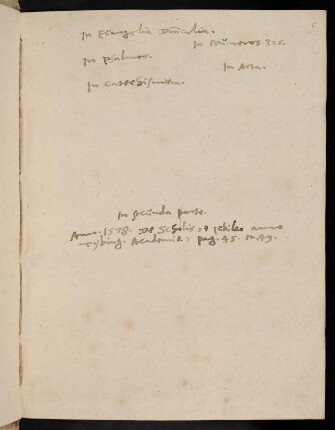 In Evangelia Dominicalia.
In Numeros. 325.
In Psalmos.
In Acta.
In Catechismum.
In secunda parte.
Anno. 1578. De Scholis, et Jubileo anno
Tybing. Academiae, pag. 45. 49.